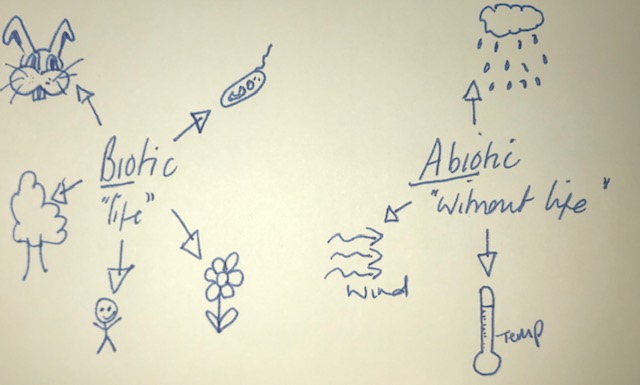 Biotic
"life"
Abiotic
"Without life"
Wind
Temp